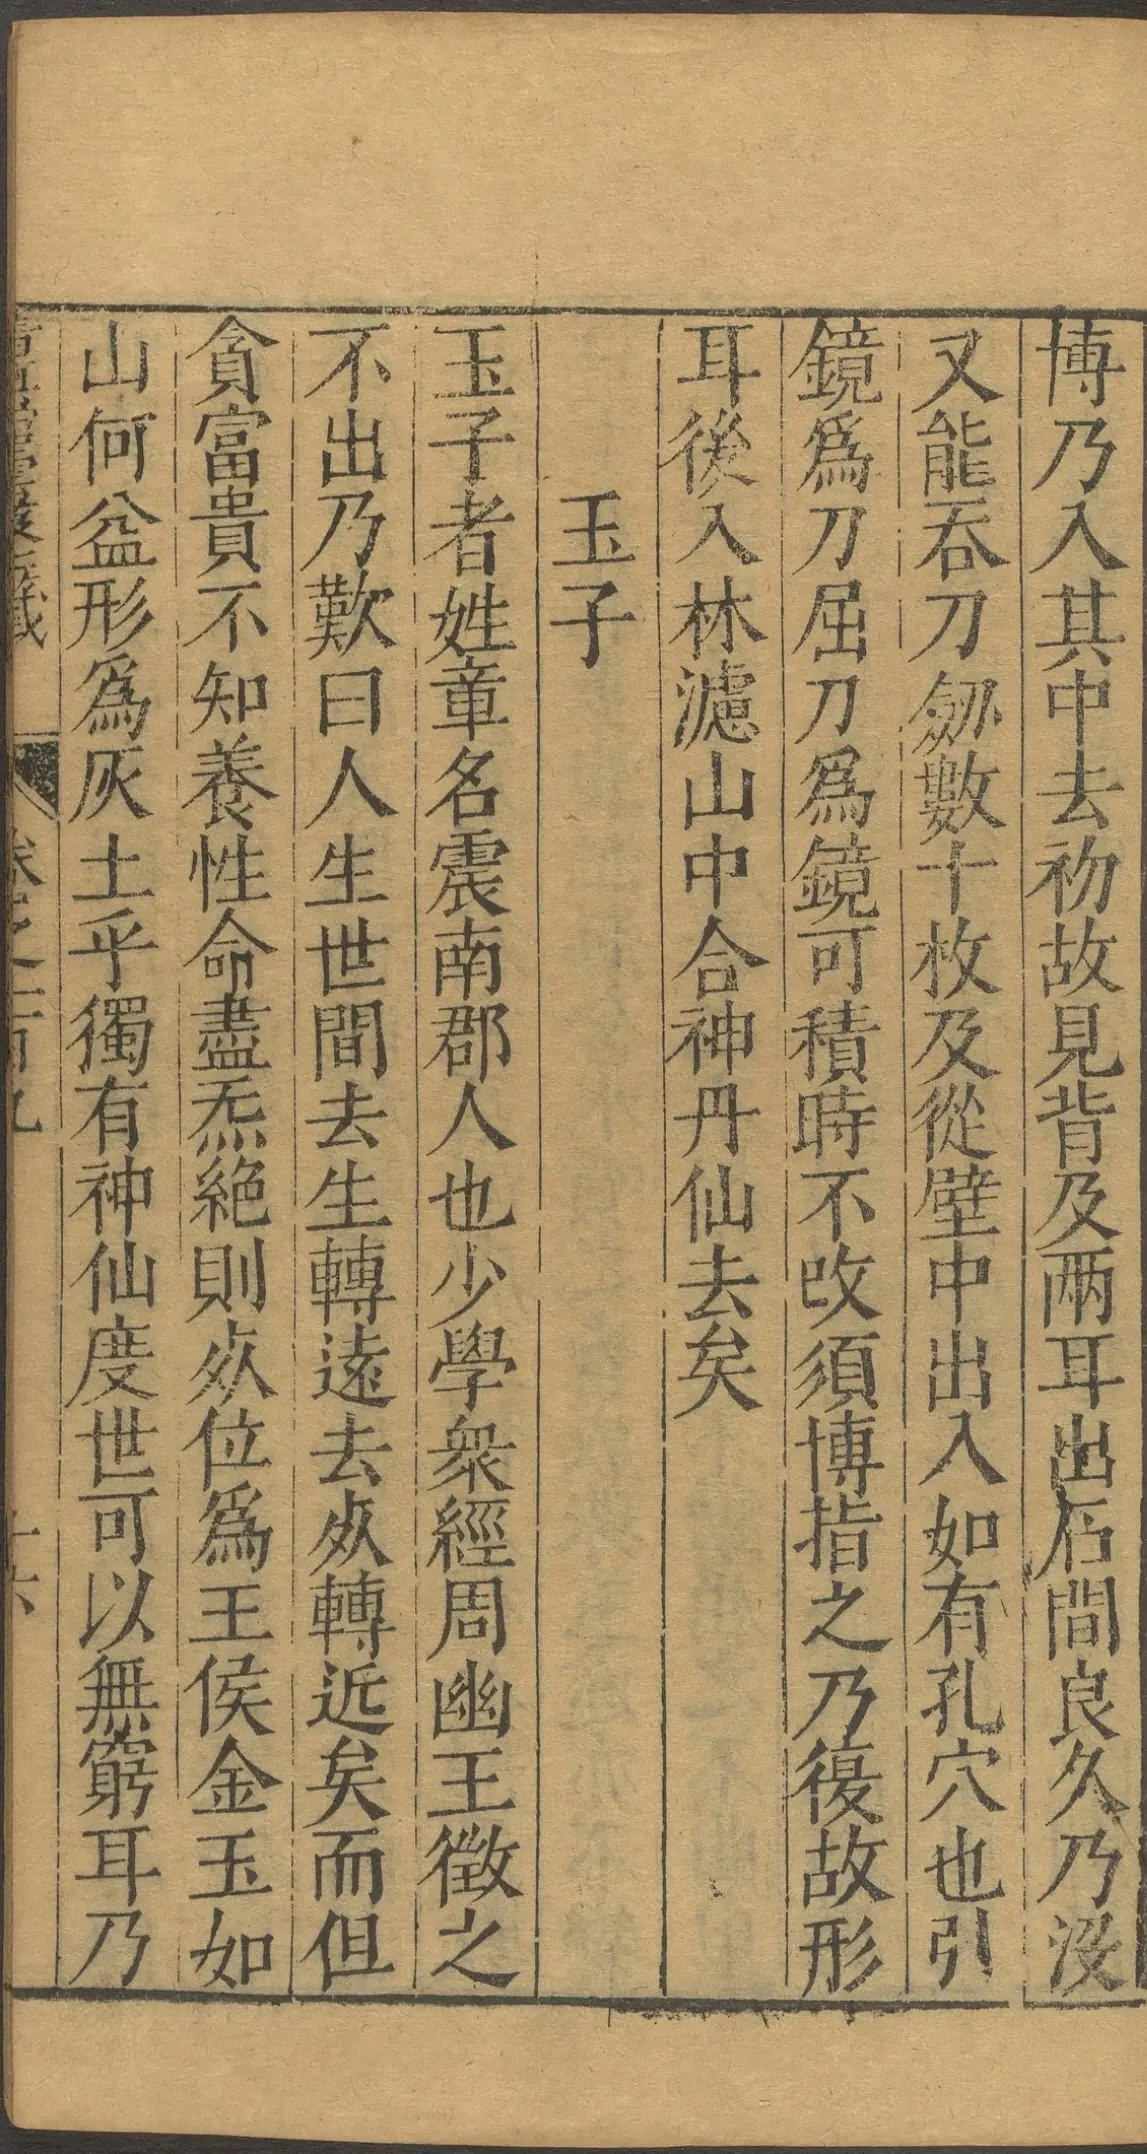 博乃入其中去初故見背及兩耳出石間良久乃没
又能吞刀劒數十枚及從壁中出入如有孔穴也引
鏡爲刀屈刀爲鏡可積時不改須博指之乃復故形
耳後入林濾山中合神丹仙去矣
玉子
玉子者姓章名震南郡人也少學衆經周幽王徵之
不出乃歎曰人生世間去生轉遠去㱠轉近矣而但
貪富貴不知養性命盡炁絶則㱠位爲王侯金玉如
山何益形爲灰土乎獨有神仙度世可以無窮耳乃
雲笈七籤 卷之一百九 十六